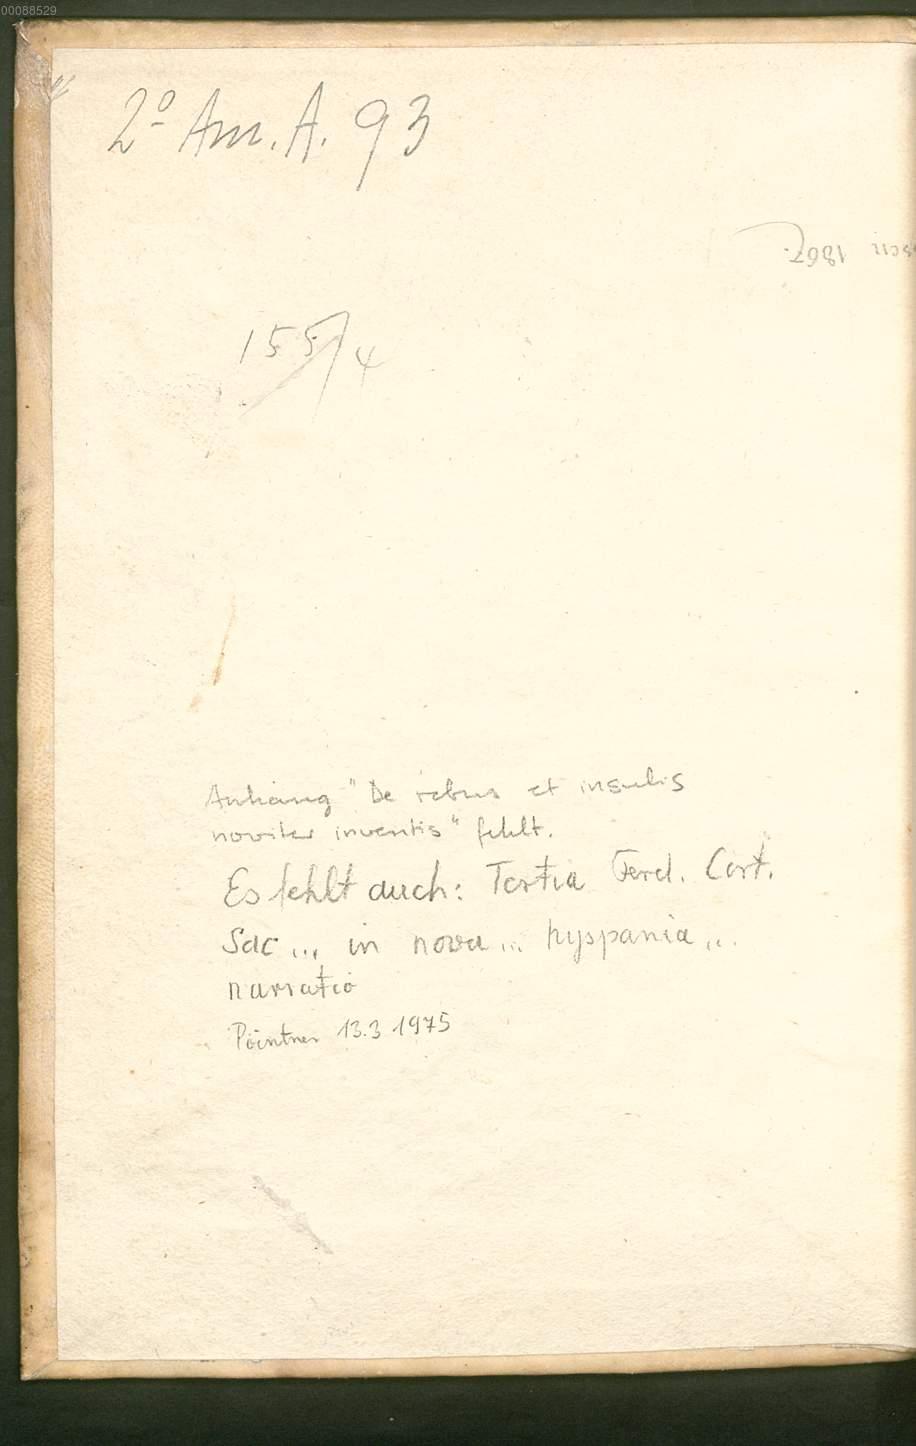 00088529
2º Am. A. 93
1867.
155/4
Anhang "De rebus et insulis
noviter inventis" fehlt.
Es fehlt auch: Tertia Ferd. Cort.
Sac ... in nova ... hyspania ...
narratio
Pointner 13.3 1975